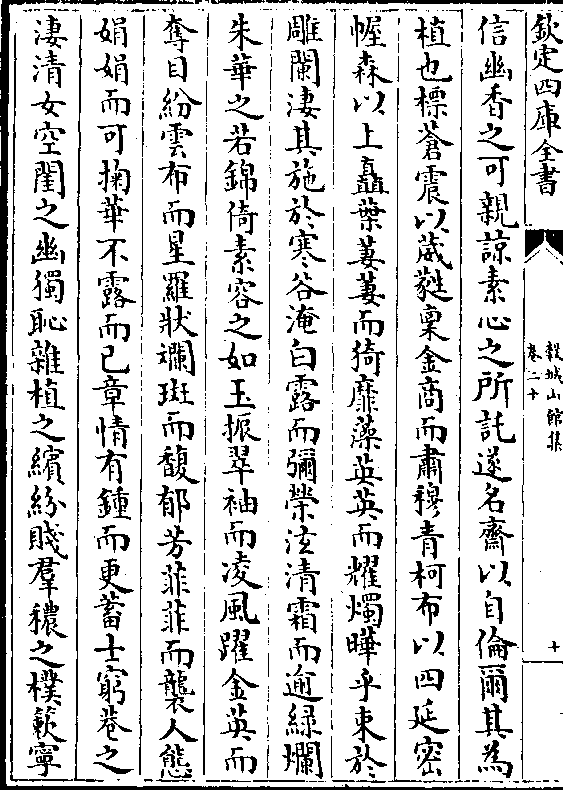 欽定四庫全書
穀城山館集
卷二十
十
信幽香之可親諒素心之所託遂名齋以自倫爾其為
植也標蒼震以葳蕤稟金商而肅穆青柯布以四延密
幄森以上矗葉萋萋而猗靡藻英英而耀燭曄乎東於
雕闌淒其施於寒谷淹白露而彌榮泫清霜而逾緑爛
朱華之若錦倚素容之如玉振翠袖而凌風躍金英而
奪目紛雲布而星羅狀斕斑而馥郁芳菲菲而襲人態
娟娟而可掬華不露而已章情有鍾而更蓄士窮巷之
淒清女空閨之幽獨恥雜植之繽紛賤羣穠之樸簌寧